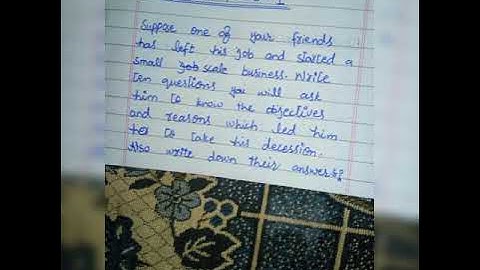 Suppose one of your friends
has left his job and started a
small job scale business. Write
ten questions you will ask
him to know the objectives
and reasons which led him
to take his decession.
Also write down their answers?